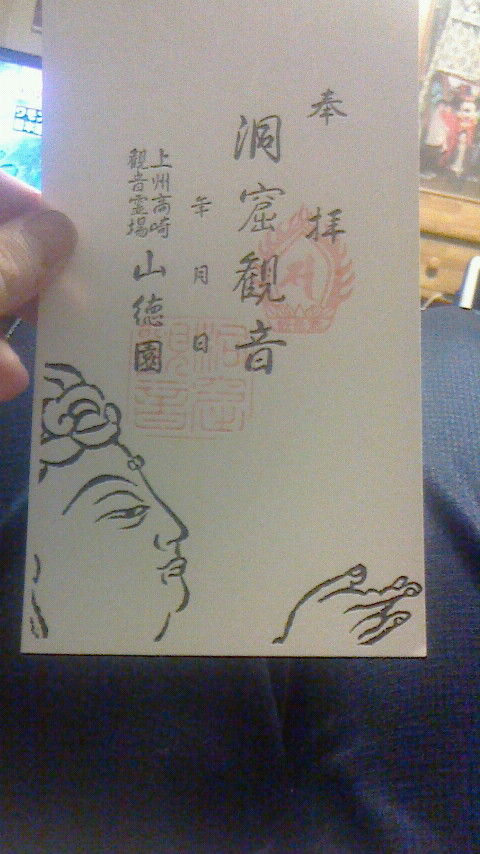 奉拝
洞窟観音
年月日
上州高崎
観音霊場
山徳園
洞窟
観音